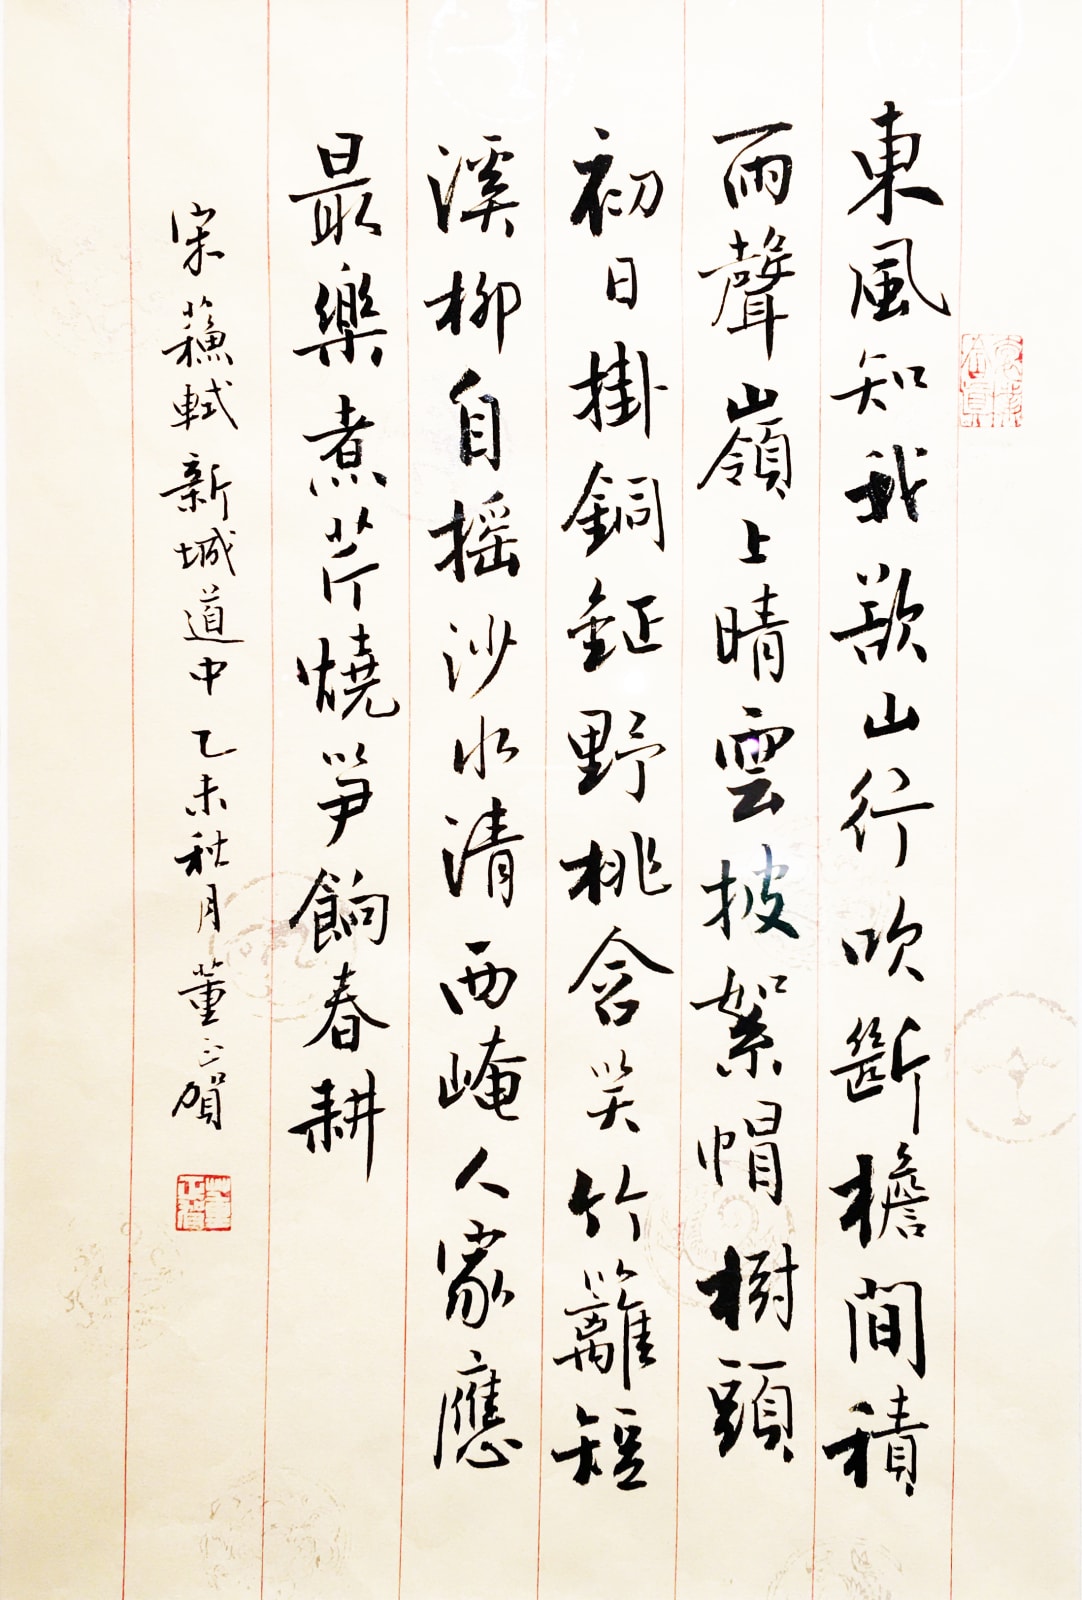 東風知我欲山行吹斷檐間積
雨聲嶺上晴雲披絮帽樹頭
初日掛銅鉦野桃含笑竹籬短
溪柳自摇沙水清西崦人家應
最樂煮芹燒笋餉春耕
宋蘓軾新城道中乙未秋月董正賀
董正賀